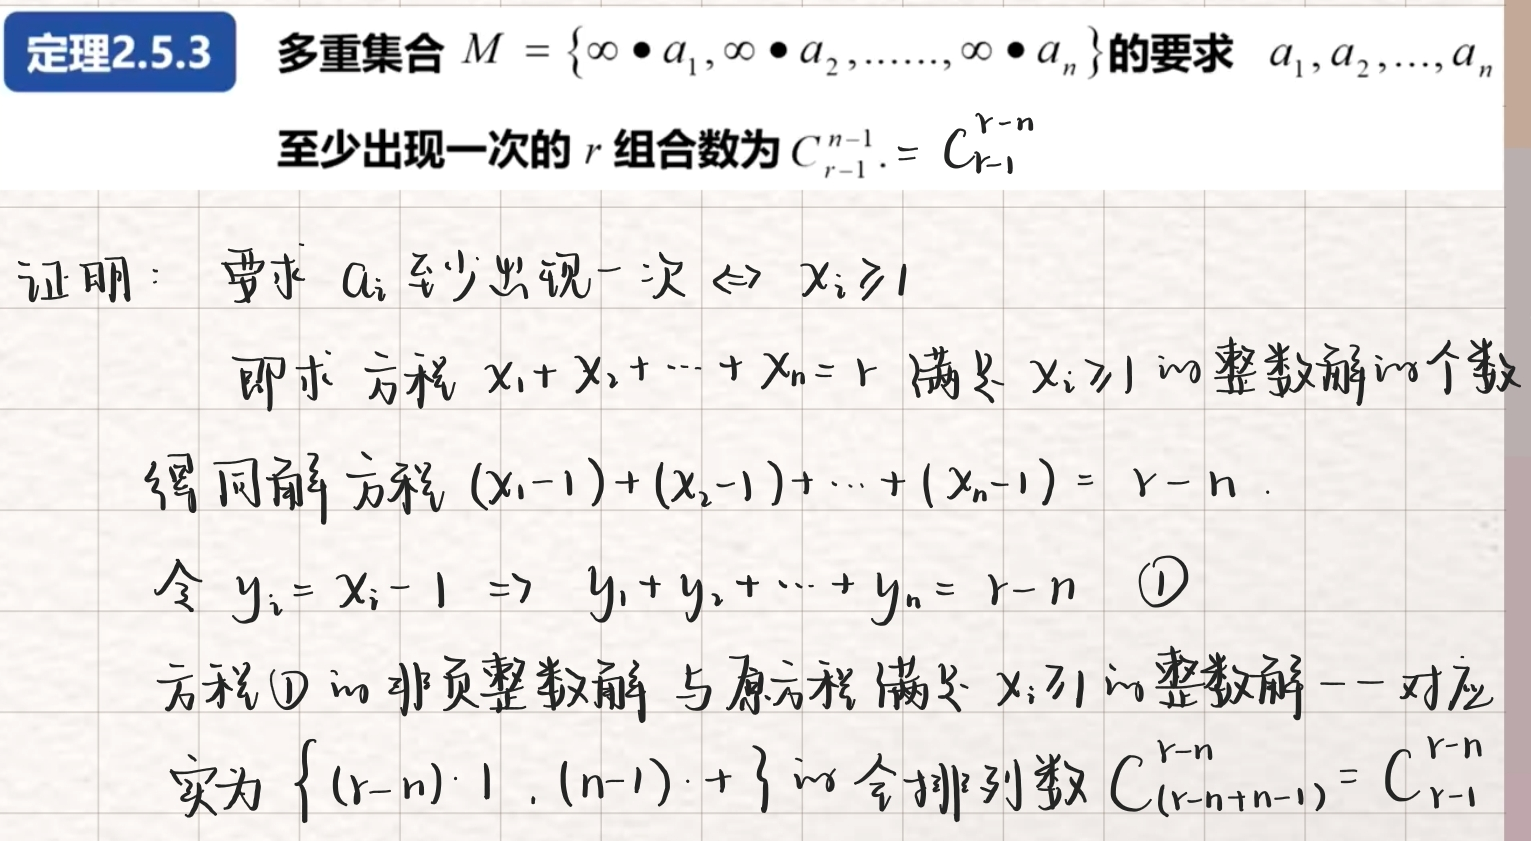 定理2.5.3 多重集合 M = {∞•a₁,∞•a₂,……,∞•aₙ}的要求 a₁,a₂,…,aₙ
至少出现一次的 r 组合数为 C_{r-1}^{n-1}. = C_{r-1}^{r-n}
证明: 要求 aᵢ 至少出现一次 <=> xᵢ ⩾ 1
即求方程 x₁+x₂+…+xₙ=r 满足 xᵢ⩾1 的整数解的个数
得同解方程 (x₁-1)+(x₂-1)+…+(xₙ-1) = r-n.
令 yᵢ=xᵢ-1 => y₁+y₂+…+yₙ=r-n ①
方程①的非负整数解与原方程满足 xᵢ⩾1 的整数解一一对应
实为 {(r-n)·1, (n-1)·+} 的全排列数 C_{(r-n+n-1)}^{r-n} = C_{r-1}^{r-n}